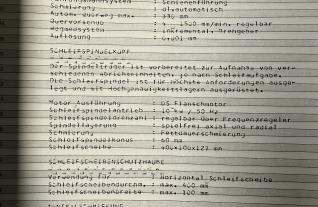 Schmierung : öl.automatisch
: 330 mm
Quervorschub : 4 - 1500 mm/min. regelbar
: inkremental. Drehgeber
Auflösung : 0,001 mm
SCHLEIFSPINDELKOPF
Der Spindelträger ist vorbereitet zur Aufnahme von ver-
schiedenen Abrichteinheiten, je nach Schleifaufgabe.
Die Schleifspindel ist für höchste Anforderungen ausge-
legt und mit Hochgenauigkeitslagern ausgerüstet.
Motor Ausführung : DS Flanschmotor
Schleifspindelantrieb : 10 kW / 50 Hz
Schleifspindeldrehzahl : regelbar über Frequenzregler
Spindellagerung : spielfrei axial und radial
Schmierung : Festdauerschmierung
Schleifspindelkonus : 60 mm
Schleifscheibe : 400x100x127 mm
SCHLEIFSCHEIBENSCHUTZHAUBE
Verwendung für : Horizontal Schleifscheibe
Schleifscheibendurchm. : max. 400 mm
Schleifscheibenbreite : max. 100 mm